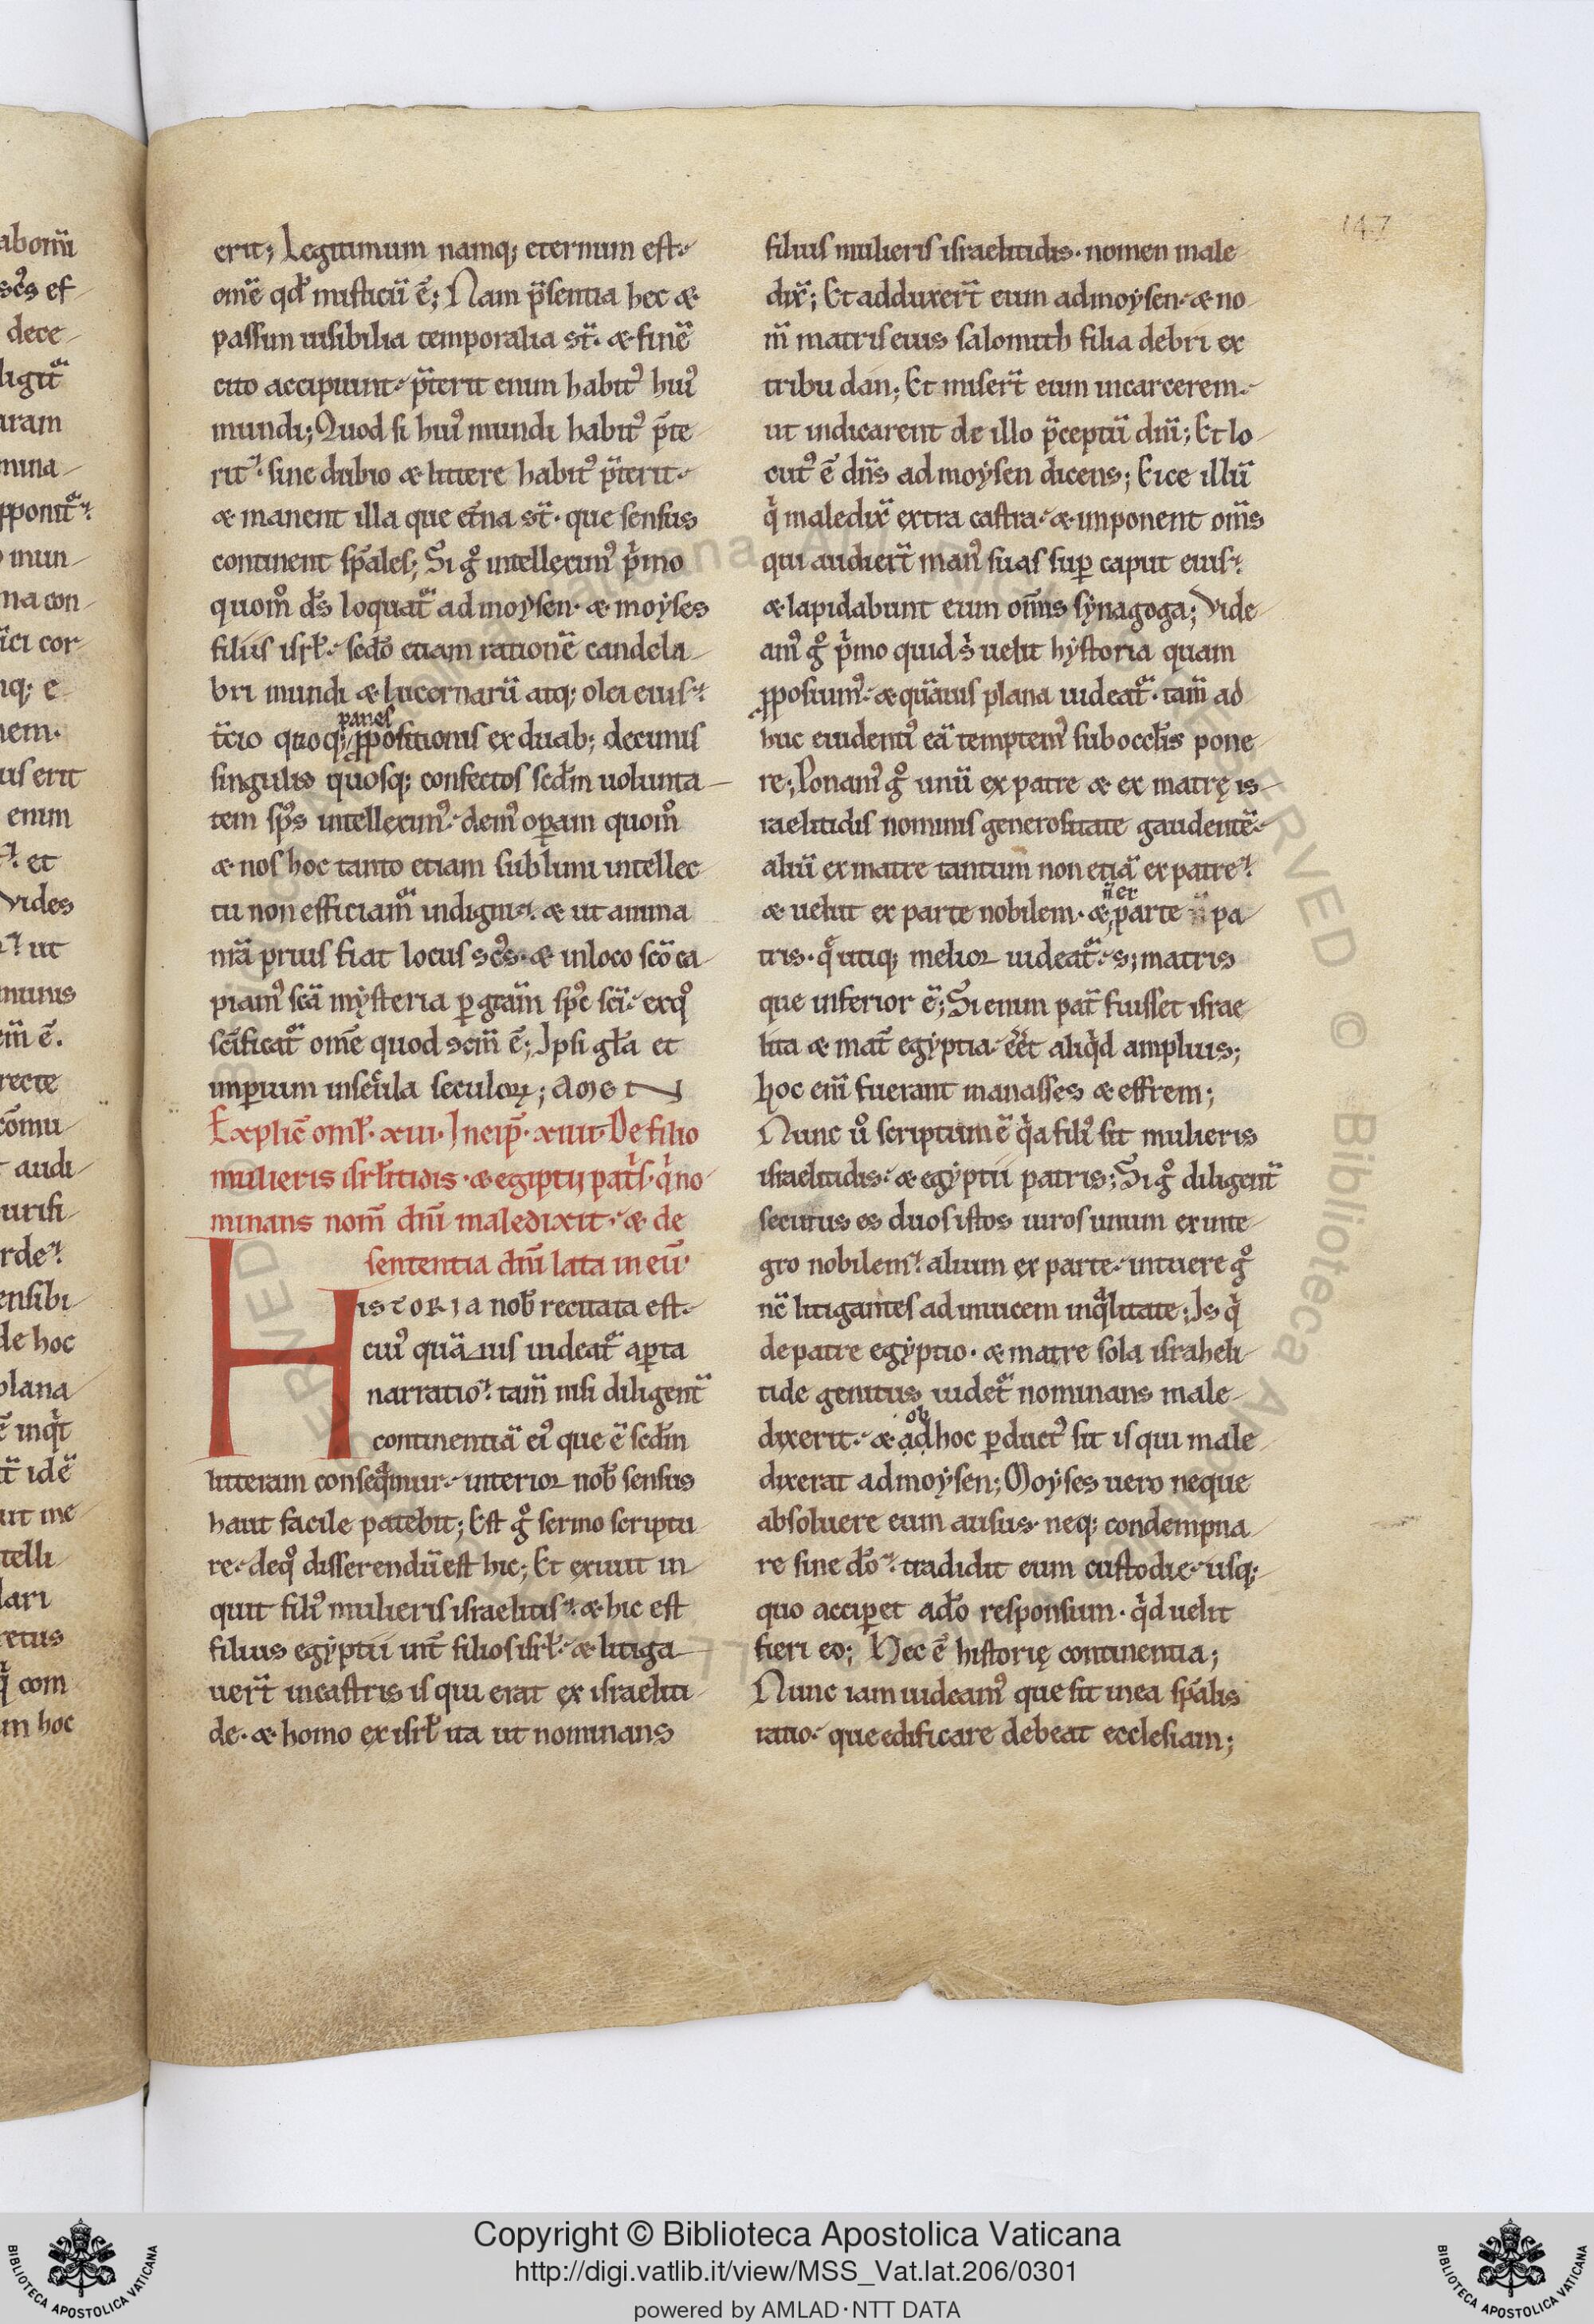 147
erit; Legitimum namq; eternum est.
om̄e qd̕ misticū ē; Nam p̄sentia hec &
passim uisibilia temporalia st̄. & finē
cito accipiunt. p̄terit enim habitꝰ huiꝰ
mundi; Quod si huiꝰ mundi habitꝰ p̄te
rit. sine dubio & littere habitꝰ p̄terit.
& manent illa que et̄na st̄. que sensus
continent sp̄ales; Si gͦ intelleximꝰ p̍mo
quom̊ d̄s loquat᷑ ad moysen. & moyses
filiis isrł. sedo etiam rationē candela
bri mundi & lucernarū atq; olei eius.
t̄cio quoq; panes ꝓpositionis ex duab; decimis
singulis quosq; confectos scdm̄ uolunta
tem sp̄s intelleximꝰ. demꝰ operam quom̊
& nos hoc tanto etiam sublimi intellec
tu non efficiam᷑ indigni. & ut anima
nr̄a prius fiat locus sc̄s. & in loco sc̄o ca
piamꝰ sc̄a mysteria ꝑ grām sp̄c sc̄i. ex qͦ
sc̄ificat᷑ om̄e quod sc̄m ē; Ipsi gła et
imperium in sc̄la seculoꝝ; AMEN
Explic̄ omł. xiii. Incip̄. xiiii. De filio
mulieris isrłitidis. & egiptij pat̍s. q̍ no
minans nom̄ dn̄i maledixit. & de
sententia dn̄i lata in eū.
HISTORIA nob̄ recitata est.
cuiꝰ quāuis uideat᷑ aꝑta
narratio. tam̄ nisi diligent᷑
continentiā eiꝰ que ē scdm̄
litteram conseq̄mur. interior nob̄ sensus
haut facile patebit; Est gͦ sermo scriptu
re. de qͦ disserendū est hic; Et exiuit in
quit filiꝰ mulieris israelitis. & hic est
filius egyptii int̄ filios isrł. & litiga
uer̄t in castris is qui erat ex israeliti
de. & homo ex isrł ita ut nominans
filius mulieris israelitidis. nomen male
dix̄; Et adduxer̄t eum ad moysen. & no
m̄ matris eius salomith filia debri ex
tribu dan; Et miser̄t eum in carcerem.
ut indicarent de illo p̄ceptū dn̄i; Et lo
cutꝰ ē dn̄s ad moysen dicens; Eice illū
q̍ maledix̄ extra castra. & imponent om̄s
qui audier̄t manꝰ suas suꝑ caput eius.
& lapidabunt eum om̄is synagoga; Vide
amꝰ gͦ p̍mo quid s̍ uelit hystoria quam
ꝓposuimꝰ. & quāuis plana uideat᷑. tam̄ ad
huc euidentiꝰ eā temptemꝰ sub occłis pone
re; Ponamꝰ gͦ unū ex patre & ex matrę is
raelitidis nominis generositate gaudentē.
aliū ex matre tantum non etiā ex patre.
& uelut ex parte nobilem. & n̄ ex parte pa
tris. q̄ utiq; melior uideat᷑. s; matris
que inferior ē; Si enim pat̄ fuisset israe
lita & mat̄ egyptia. eēt aliq̍d amplius;
hoc eni᷑ fuerant manasses & effrem;
Nunc ů scriptum ē q̍a filiꝰ sit mulieris
israelitidis. & egyptii patris; Si gͦ diligent᷑
secutus es duos istos uiros unum ex inte
gro nobilem. alium ex parte. intuere gͦ
nc̄ litigantes ad inuicem in q̄litate; Is q̍
de patre egyptio. & matre sola israheli
tide genitus uidet᷑ nominans male
dixerit. & ob ad hoc ꝑductꝰ sit is qui male
dixerat ad moysen; Moyses uero neque
absoluere eum ausus neq; condempna
re sine do̅. tradidit eum custodie. usq;
quo acciꝑet a do̅ responsum. q̍d uelit
fieri eo; Hec ē historię continentia;
Nunc iam uideamꝰ que sit in ea sp̄alis
ratio. que edificare debeat ecclesiam;
Copyright © Biblioteca Apostolica Vaticana
http://digi.vatlib.it/view/MSS_Vat.lat.206/0301
powered by AMLAD·NTT DATA
BIBLIOTECA APOSTOLICA VATICANA
BIBLIOTECA APOSTOLICA VATICANA